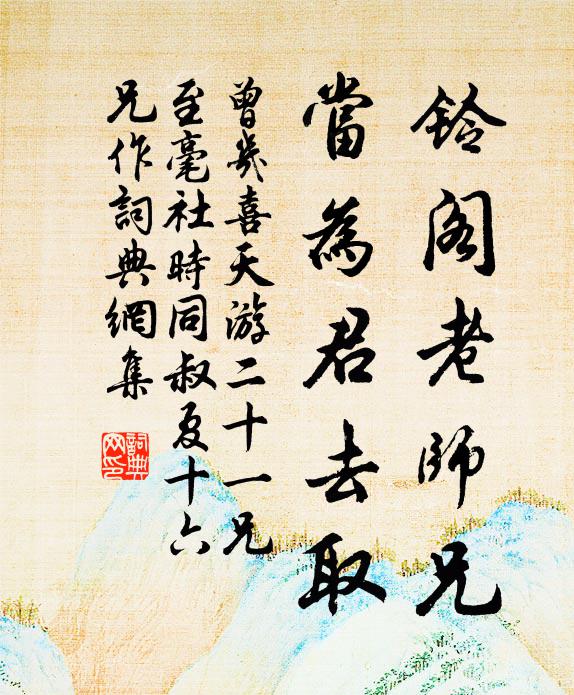 鈴阁老師兄
當為君去取
曾幾喜天游二十一兄
至毫社時同叔夏十六
兄作詞典網集
詞典网印